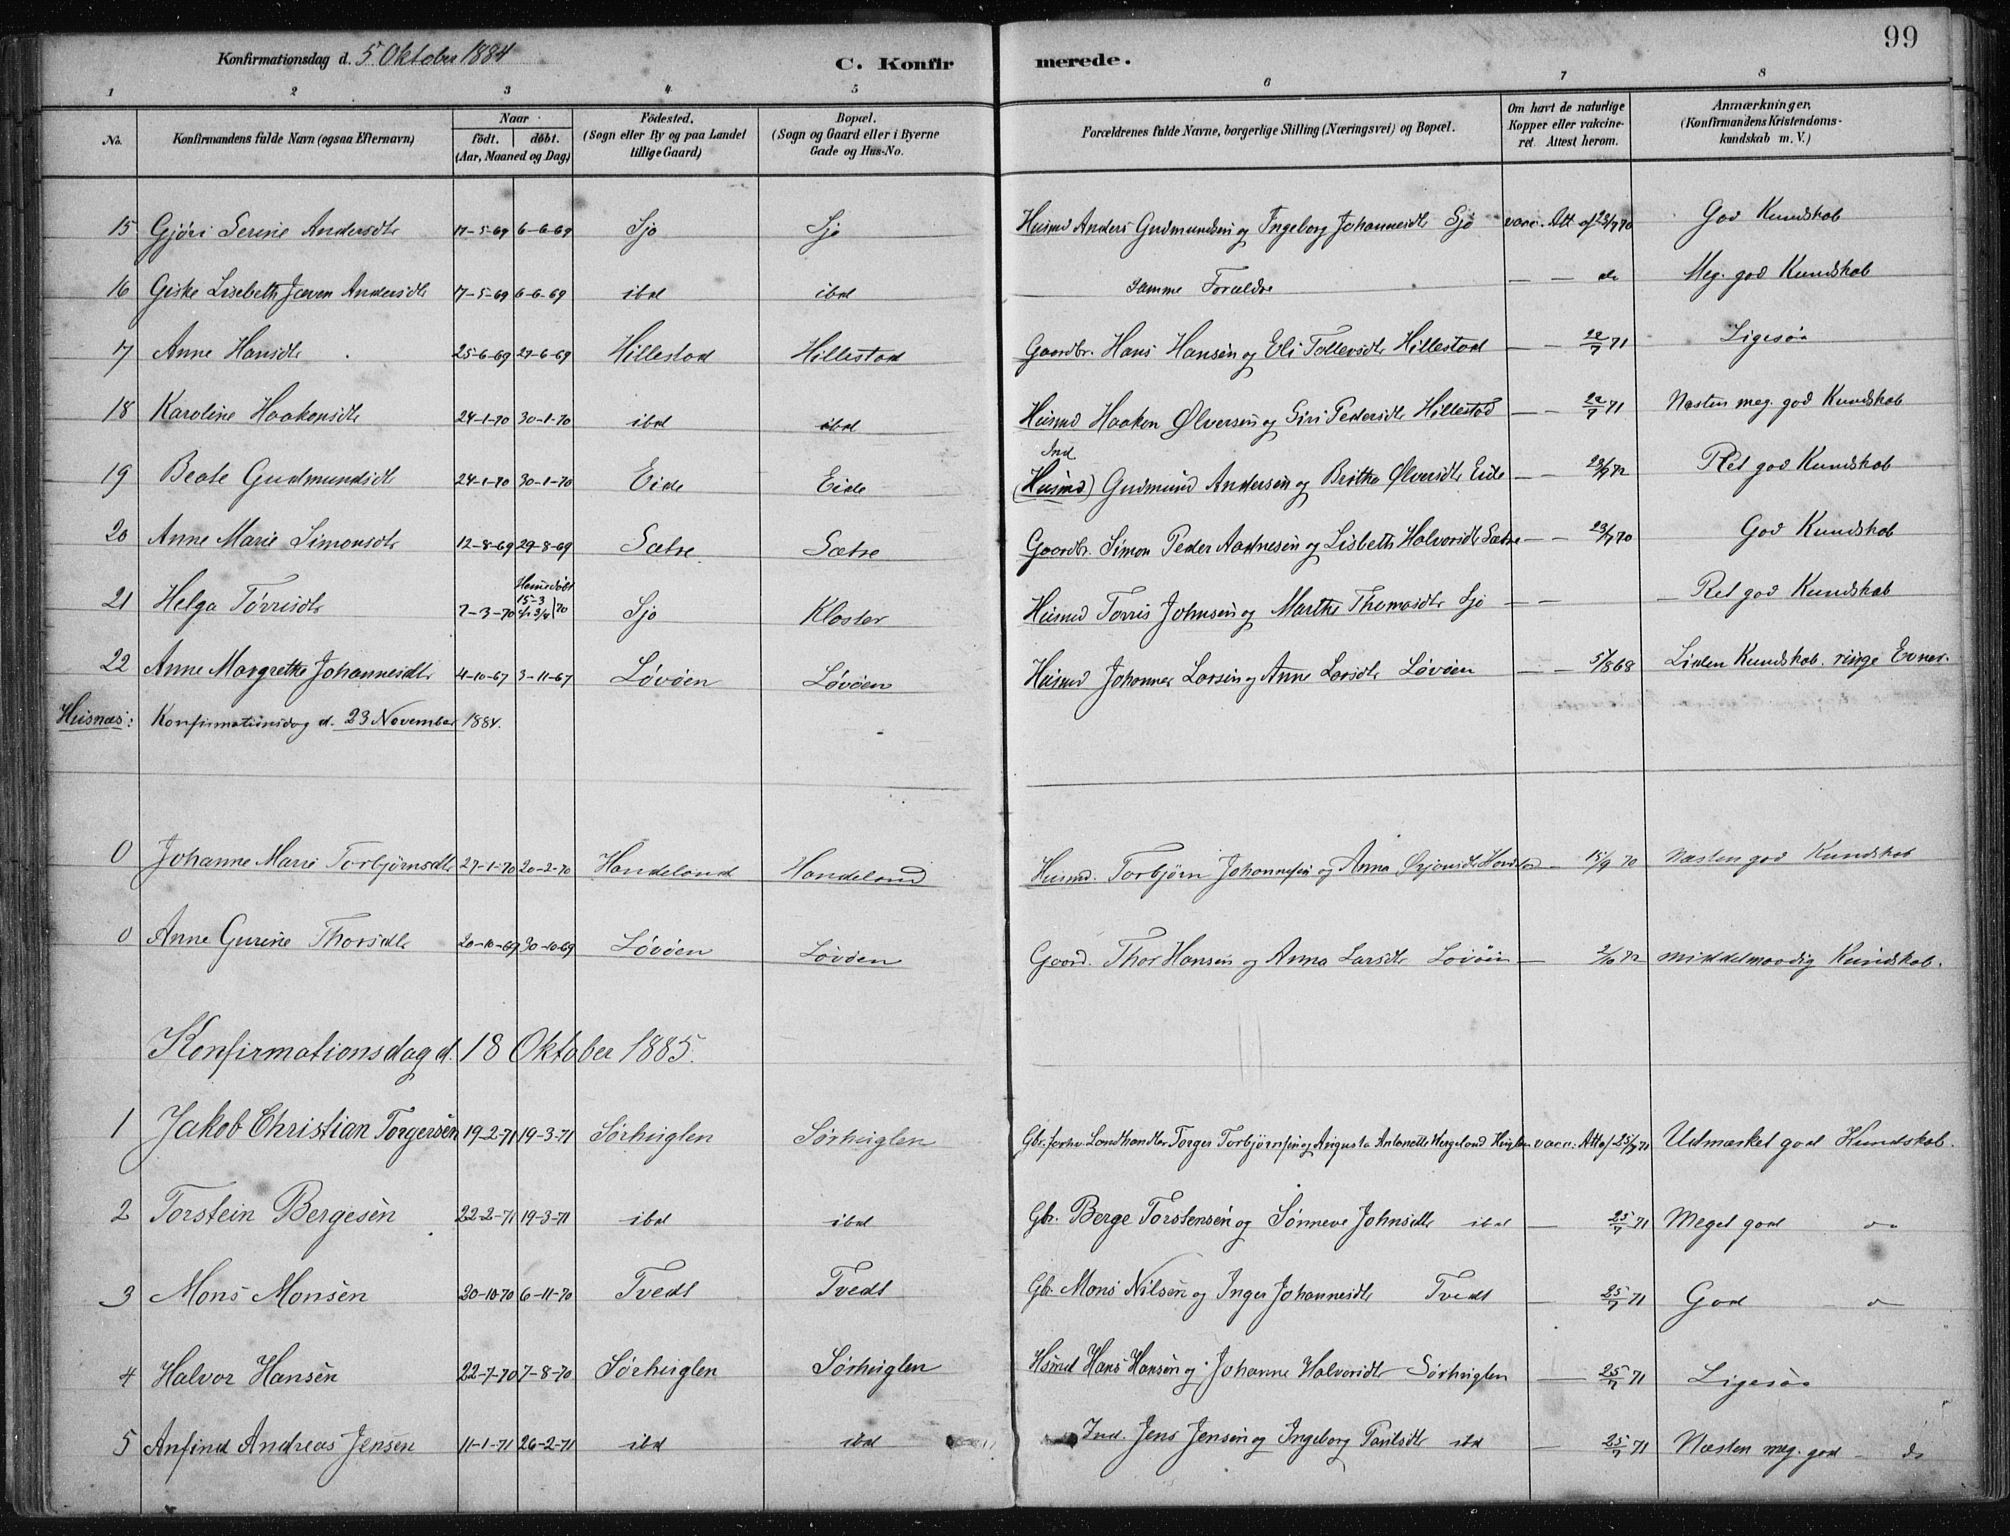 99
Konfirmationsdag d. 5 Oktober 1884
C. Konfirmerede.
1 2 3 4 5 6 7 8
No. Konfirmandens fulde Navn (ogsaa Efternavn) Naar födt. döbt. (Aar, Maaned og Dag) Födested. (Sogn eller By og paa Landet tillige Gaard) Bopæl. (Sogn og Gaard eller i Byerne Gade og Hus-No. Forældrenes fulde Navne, borgerlige Stilling (Næringsvei) og Bopæl. Om havt de naturlige Kopper eller vakcineret. Attest herom. Anmærkninger, (Konfirmandens Kristendomskundskab m. V.)
15 Gjöri Serine Andersdtr 17-5-69 6-6-69 Sjo Sjo Husmd Anders Gudmundsen og Ingeborg Johannesdtr Sjo vacc. Att af 23/7 70 God Kundskab
16 Giske Lisebeth Andersdtr 17-5-69 6-6-69 ibd ibd samme Forældre — — do Meg. god Kundskab
17 Anne Hansdtr 25-6-69 27-6-69 Hillestad Hillestad Gaardbr. Hans Hansen og Eli Tollevsdtr Hillestad — — 22/7 71 Ligesaa
18 Karoline Haakensdtr 24-1-70 30-1-70 ibd ibd Husmd Haaken Ølversen og Siri Pedersdtr Hillestad — — 22/7 71 Næsten meg. god Kundskab
19 Beate Gudmundsdtr 24-1-70 30-1-70 Eide Eide Ind. (Husmd) Gudmund Andersen og Britha Ølversdtr Eide — — 23/9 72 Ret god Kundskab
20 Anne Marie Simonsdtr 12-8-69 29-8-69 Sætre Sætre Gaardbr. Simon Peder Aadnesen og Lisbeth Halvorsdtr Sætre — — 23/7 70 God Kundskab
21 Helga Törrisdtr 7-3-70 Hjemmedöbt 15-3 3/4 70 Sjo Kloster Husmd Torris Johnsen og Marthe Thomasdtr Sjo — — — Ret god Kundskab
22 Anne Margrethe Johannesdtr 4-10-67 3-11-67 Lövöen Lövöen Husmd Johannes Larsen og Anne Larsdtr Lövöen — — 5/8 68 Liden Kundskab. ringe Evner.
Husnæs: Konfirmationsdag d. 23 November 1884.
0 Johanne Marie Torbjørnsdtr 27-1-70 20-2-70 Handeland Handeland Husmd. Torbjörn Johannesen og Anna — 15/9 70 Næsten god Kundskab
0 Anne Gurine Thorsdtr 20-10-69 30-10-69 Lövöen Lövöen Gaard. Thor Hansen og Anna Larsdtr Lövöen — 2/10 72 middelmaadig Kundskab.
Konfirmationsdag d. 18 Oktober 1885.
1 Jakob Christian Torgersen 19-2-71 19-3-71 Sörhuglen Sörhuglen Gbr. forhv. Landhandler Torger Torbjörnsen og Augusta Antonette Wergeland Huglen vacc. Att af 25/7 71 Udmærket god Kundskab.
2 Torstein Bergesen 22-2-71 19-3-71 ibd ibd Gbr. Berge Torstensen og Sönneve Johnsdtr ibd — 25/7 71 Meget god do
3 Mons Monsen 20-10-70 6-11-70 Tvedt Tvedt Gbr. Mons Nilsen og Inger Johannesdtr Tvedt — 25/7 71 God do
4 Halvor Hansen 22-7-70 7-8-70 Sörhuglen Sörhuglen Hsmd Hans Hansen og Johanne Halvorsdtr Sörhuglen — 25/7 71 Ligesaa
5 Anfind Andreas Jensen 11-1-71 26-2-71 ibd ibd Ind. Jens Jensen og Ingeborg Paulsdtr ibd — 25/7 71 Næsten meg. god — do